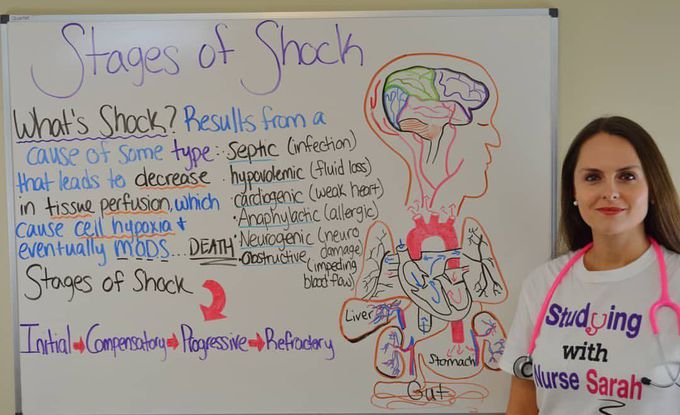 Stages of Shock
What's Shock? Results from a
cause of some type:
that leads to decrease
in tissue perfusion, which
cause cell hypoxia &
eventually MODS...DEATH
· Septic (infection)
· hypovolemic (fluid loss)
· cardiogenic (weak heart)
· Anaphylactic (allergic)
· Neurogenic (neuro
damage)
· Obstructive (impeding
blood flow)
Stages of Shock
Initial → Compensatory → Progressive → Refractory
Liver
Stomach
Gut
Studying
with
Nurse Sarah